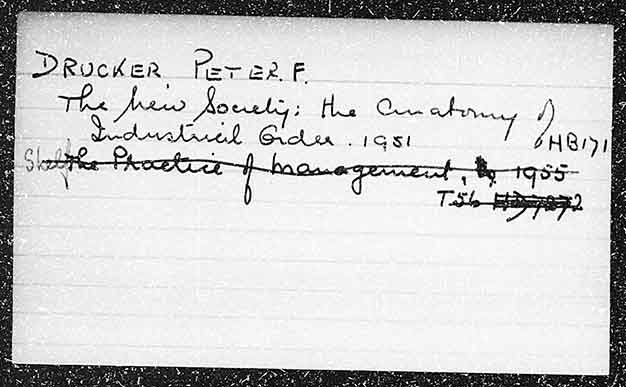 DRUCKER PETER. F.
The New Society: the anatomy of
Industrial Order. 1951 HB171
Shelf The Practice of Management, 1955
T56